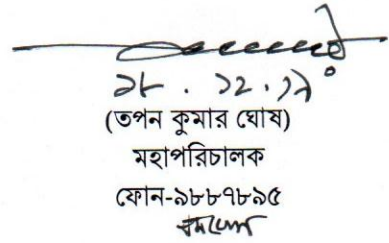 ২৮.১২.১৭
(তপন কুমার ঘোষ)
মহাপরিচালক
ফোন-৯৮৮৭৮৯৫